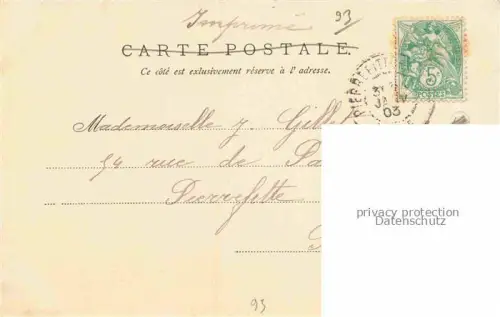 Imprimé 93
CARTE POSTALE
Ce côté est exclusivement réservé à l'adresse.
5
PIERREFITTE
31
JANV
03
Mademoiselle J. Gill
54 rue de
Pierrefitte
privacy protection
Datenschutz
93